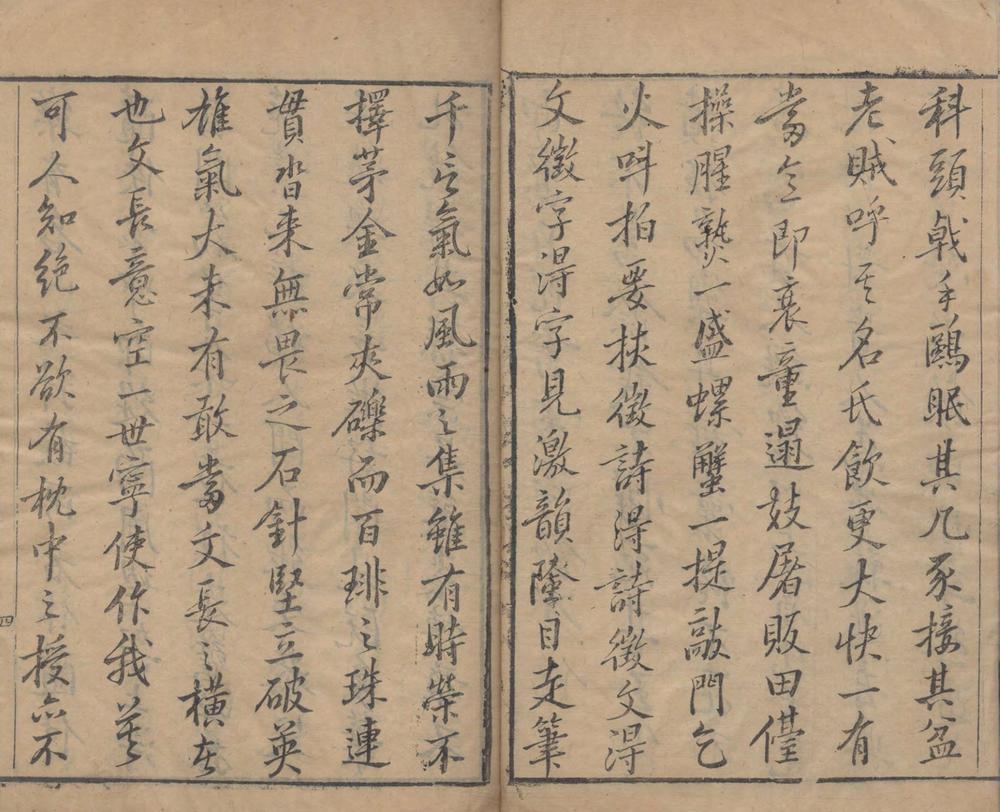 科頭戟手鷗眠其几豕接其盆
老賊呼其名氏飲更大快一有
當意即衰童遢妓屠販田儓
操腥熟一盛螺蟹一提敲門乞
火叫拍要挾徵詩得詩徵文得
文徵字得字見激韻險目走筆
千言氣如風雨之集雖有時榮不
擇茅金常夾礫而百琲之珠連
貫沓来無畏之石針堅立破英
雄氣大未有敢當文長之橫者
也文長意空一世寧使作我莫
可人知絕不欲有枕中之授亦不
四